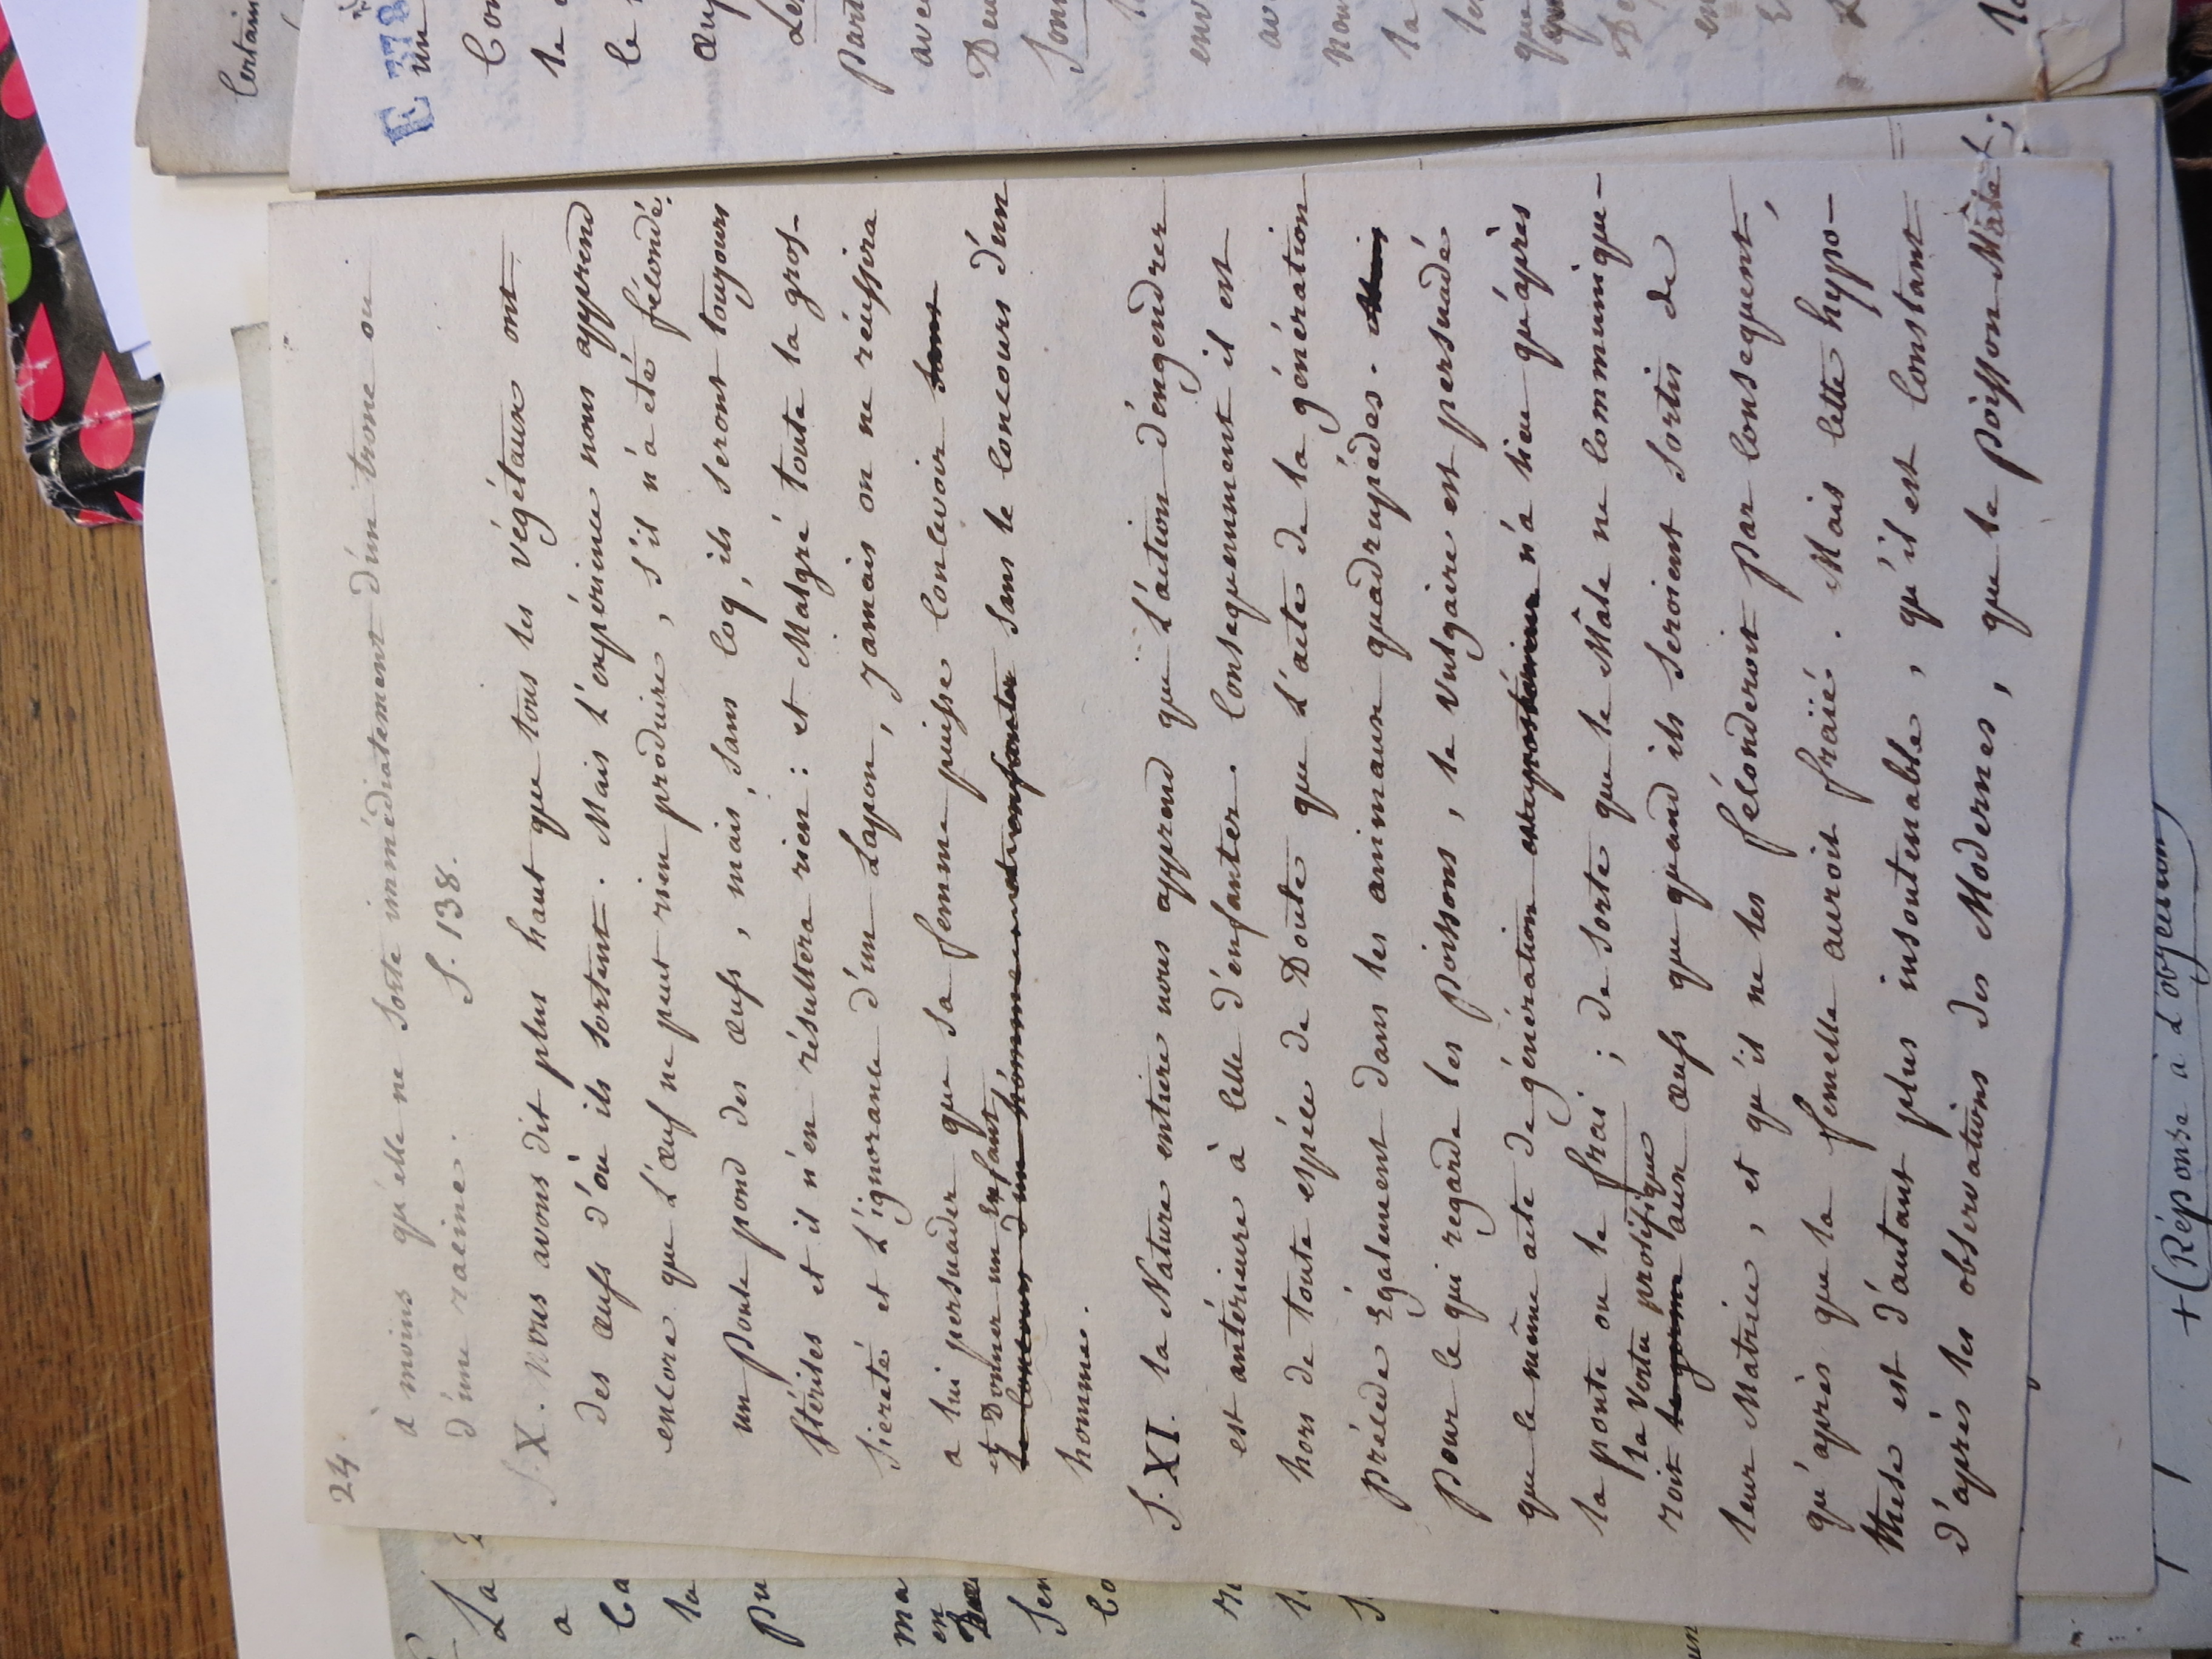 24.
à moins qu'elle ne sorte immédiatement d'un tronc ou
d'une racine. S. 138.
S. X. nous avons dit plus haut que tous les végétaux ont
des œufs d'où ils sortent. Mais l'expérience nous apprend
encore que l'œuf ne peut rien produire, s'il n'a eté fécondé.
un Poule pond des œufs, mais, sans Coq, ils seront toujours
stériles et il n'en résultera rien : et Malgré toute la gros-
siereté et l'ignorance d'un Lapon, jamais on ne réussira
a lui persuader que sa femme puisse concevoir sans
et Donner un Enfant
le concours d'un homme et enfanter sans le concours d'un
homme.
S. XI. la Nature entiere nous apprend que l'action d'engendrer
est antérieure à celle d'enfanter. Consequemment il est
hors de toute espéce de Doute que l'acte de la génération
précéde Egalement dans les animaux quadrupédes.
Pour ce qui regarde les Poissons, le Vulgaire est persuadé
que ce même acte de génération n'a lieu qu'après
la ponte ou le frai ; de sorte que le Mâle ne communique-
la vertu prolifique
roit le germe aux œufs que quand ils seroient sortis de
leur Matrice, et qu'il ne les féconderoit par consequent,
qu'après que la femelle auroit fraïé. Mais cette hypo-
these est d'autant plus insoutenable, qu'il est constant
d'après les observations des Modernes, que le poisson Mâle
+ (Réponse à l'objection)
Certain
E
un
Con
le
le
œuf
Les
Part
ave
Deu
Son
env
av
non
la
que
en
La
a
la
pu
ma
en
Sen
Co